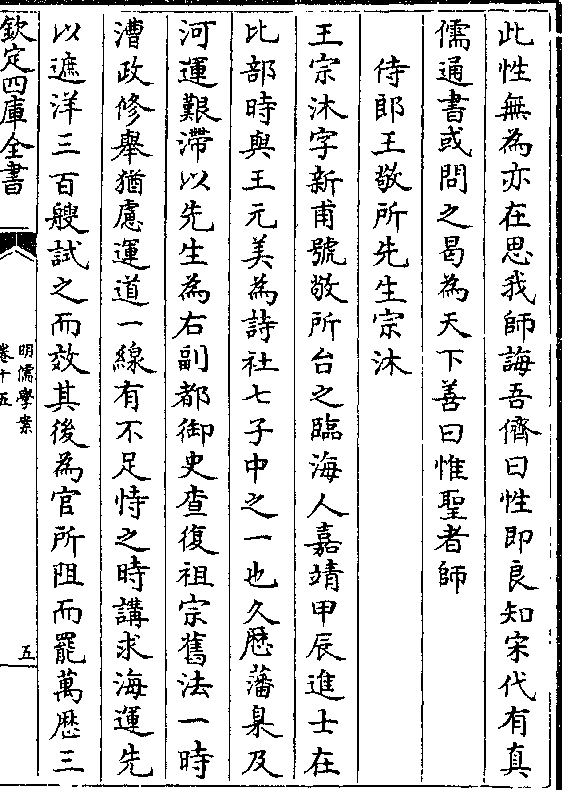 此性無為亦在思我師誨吾儕曰性即良知宋代有真
儒通書或問之曷為天下善曰惟聖者師
侍郎王敬所先生宗沐
王宗沐字新甫號敬所台之臨海人嘉靖甲辰進士在
比部時與王元美為詩社七子中之一也久厯藩臬及
河運艱滯以先生為右副都御史查復祖宗舊法一時
漕政修舉猶慮運道一線有不足恃之時講求海運先
以遮洋三百艘試之而效其後為官所阻而罷萬厯三
欽定四庫全書
明儒學案
卷十五
五